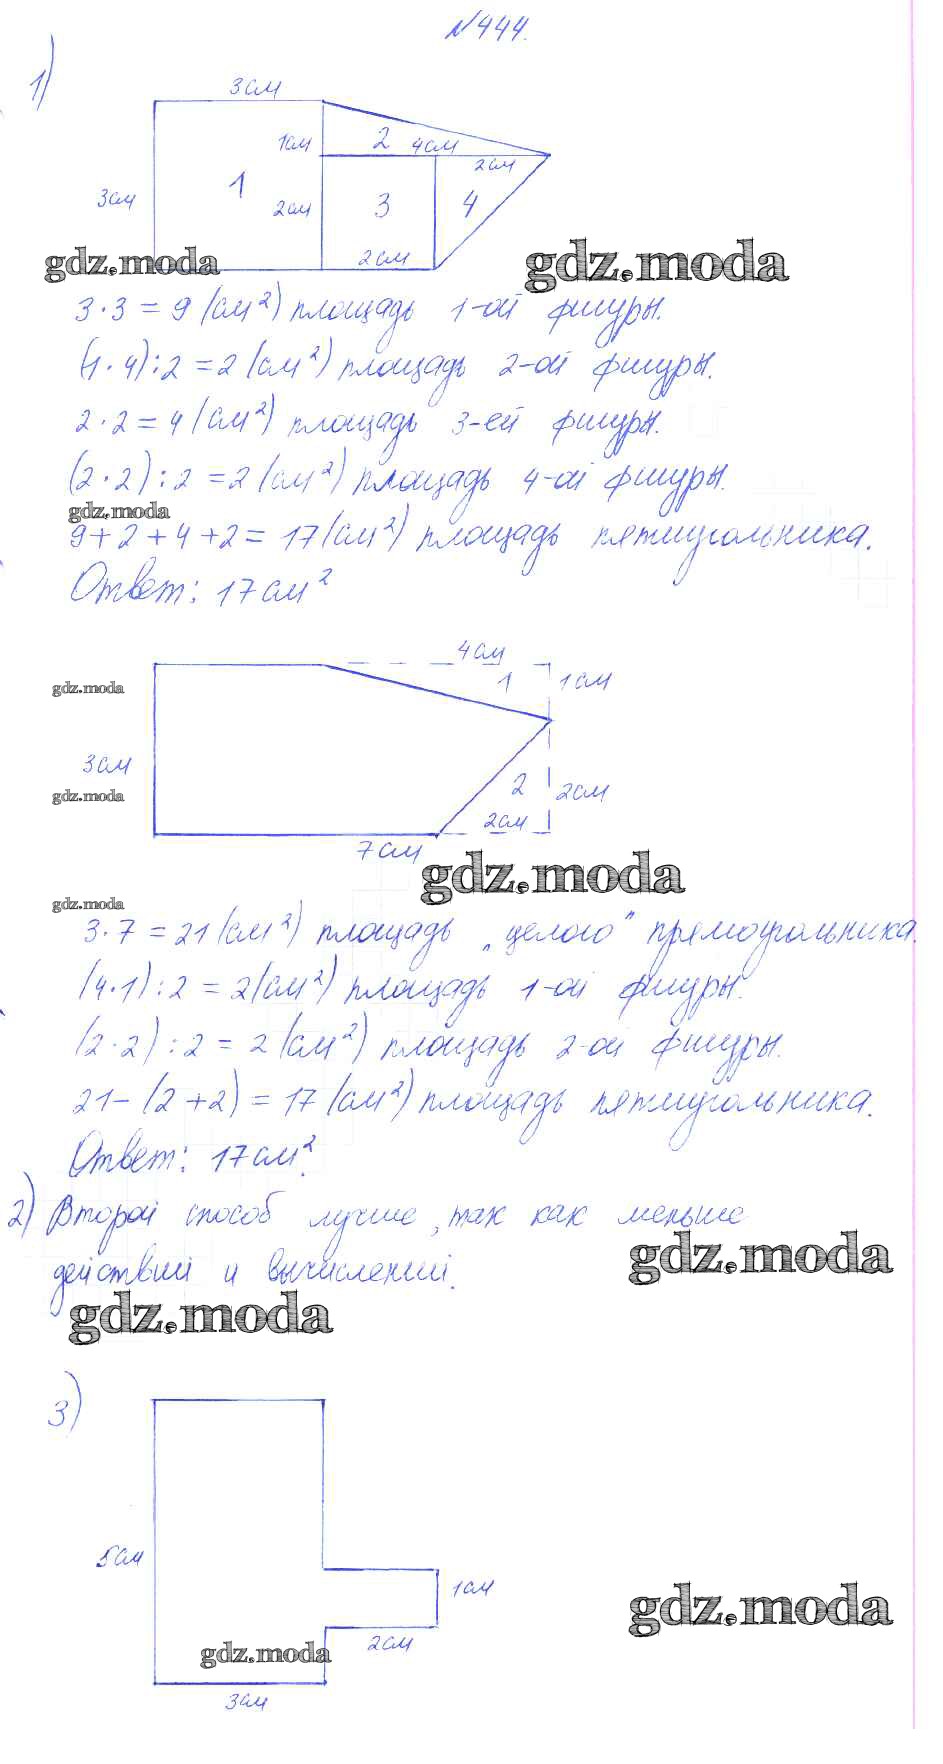 №444.
1)
3см
1см
2
4см
2см
3см
1
2см
3
4
2см
gdz.moda
gdz.moda
3·3=9(см²) площадь 1-ой фигуры.
(1·4):2=2(см²) площадь 2-ой фигуры.
2·2=4(см²) площадь 3-ей фигуры.
(2·2):2=2(см²) площадь 4-ой фигуры.
gdz.moda
9+2+4+2=17(см²) площадь пятиугольника.
Ответ: 17см²
4см
gdz.moda
1
1см
3см
2
2см
gdz.moda
2см
7см
gdz.moda
gdz.moda
3·7=21(см²) площадь „целого" прямоугольника.
(4·1):2=2(см²) площадь 1-ой фигуры.
(2·2):2=2(см²) площадь 2-ой фигуры.
21-(2+2)=17(см²) площадь пятиугольника.
Ответ: 17см².
2) Второй способ лучше, так как меньше
gdz.moda
действий и вычислений.
gdz.moda
3)
5см
1см
gdz.moda
2см
gdz.moda
3см